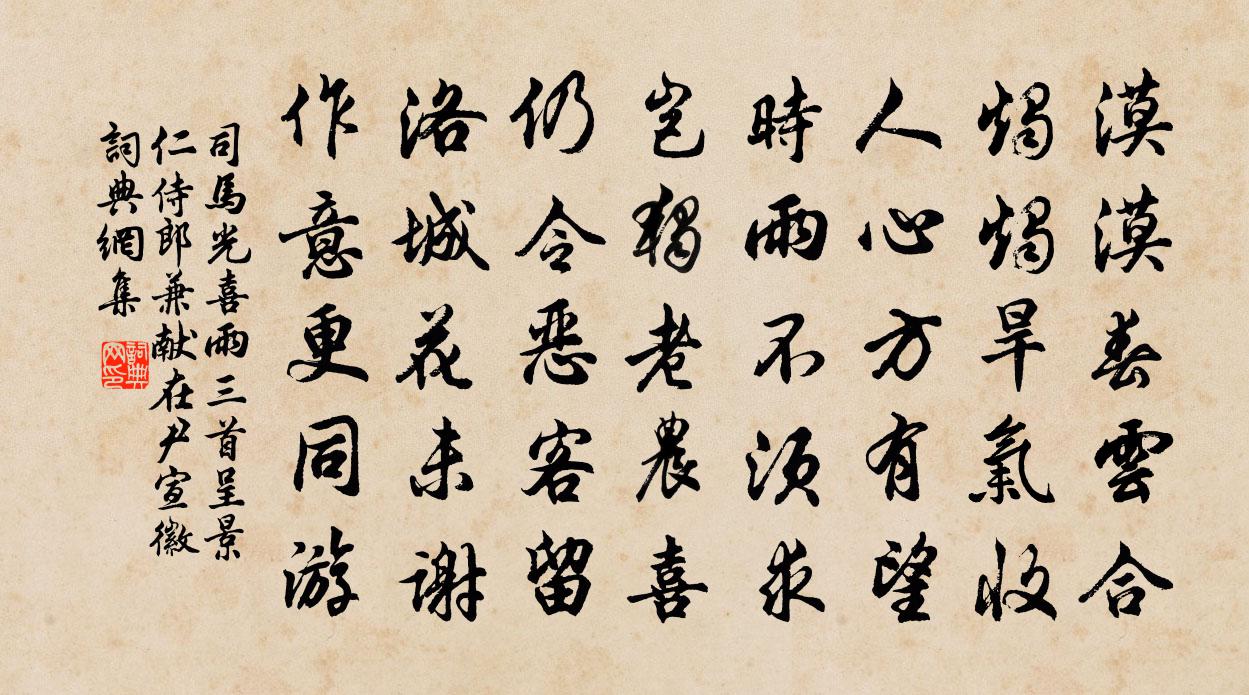 漠漠春雲合
燭燭旱氣收
人心方有望
時雨不須求
豈獨老農喜
仍令惡客留
洛城花未謝
作意更同游
司馬光喜雨三首呈景
仁侍郎兼献在尹宣徽
詞典網集
詞典网印